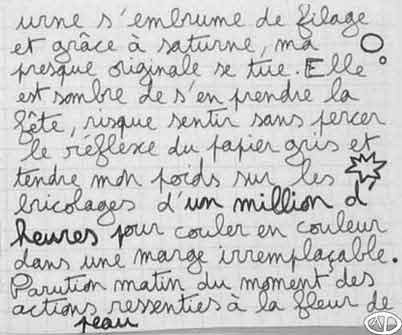 urne s'embrume de filage
et grâce à saturne, ma
presque originale se tue. Elle
est sombre de s'en prendre la
fête, risque sentir sans percer
le réflexe du papier gris et
tendre mon poids sur les
bricolages d'un million d'
heures pour couler en couleur
dans une marge irremplaçable.
Parution matin du moment des
actions ressenties à la fleur de
peau